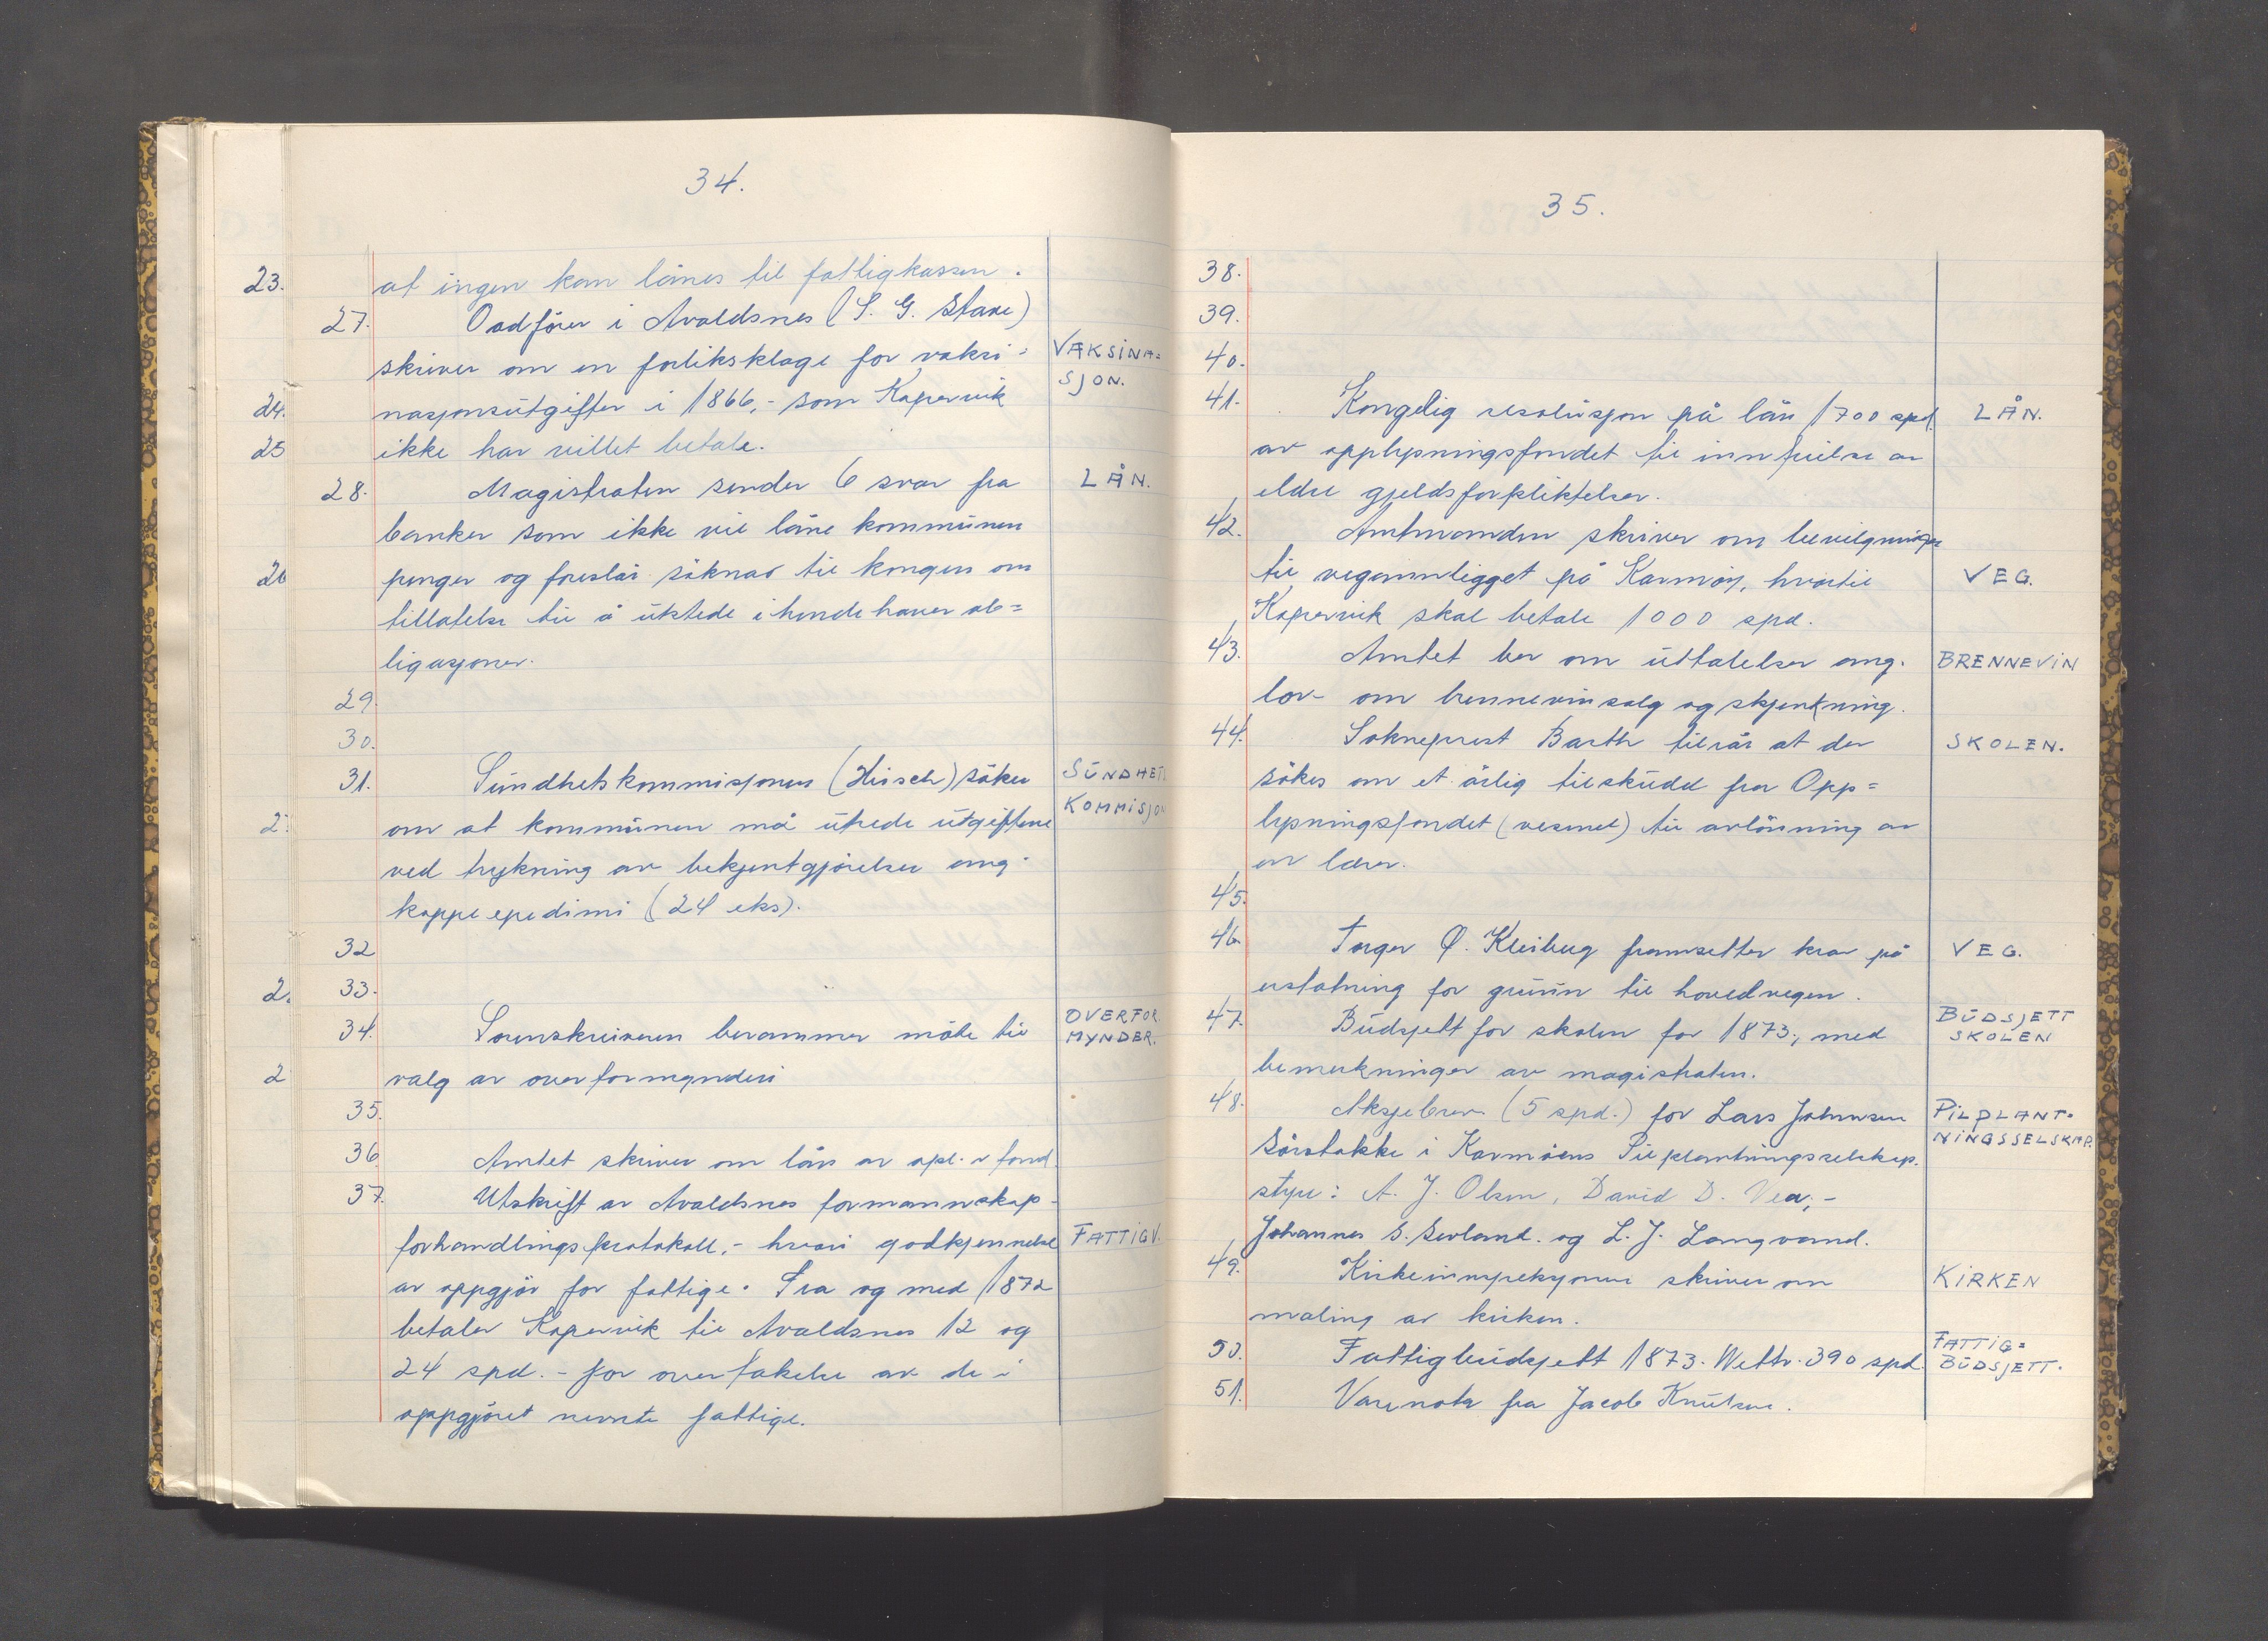 34.
23.
at ingen kan lånes til fattigkassen.
27. Ordfører i Avaldsnes (S. G. Stave)
skriver om en forliksklage for vaksi= VAKSINA=
SJON.
24. nasjonsutgifter i 1866,- som Kopervik
25 ikke har villet betale.
28. Magistraten sender 6 svar fra LÅN.
banker som ikke vil låne kommunen
26 penger og foreslår söknad til kongen om
tillatelse til å utstede ihendehaver ob=
ligasjoner.
29.
30.
31. Sundhetskommisjonen (Hirsch) söker SUNDHET
2 om at kommunen må utrede utgiftene KOMMISJON
ved trykning av bekjentgjörelser ang.
koppeepedimi (24 eks).
32
2. 33.
34. Sorenskriveren berammer möte til OVERFOR.
MYNDER.
2 valg av overformynderi
35.
36 Amtet skriver om lån av opl.v fond.
37. Utskrift av Avaldsnes formannskap-
forhandlingsprotokoll,- hvori godkjennelse FATTIGV.
av oppgjör for fattige. Fra og med 1872
betaler Kopervik til Avaldsnes 12 og
24 spd. - for overtakelse av de i
oppgjöret nevnte fattige.
35.
38.
39.
40.
41. Kongelig resolusjon på lån 1700 spd. LÅN.
av opplysningsfondet til innfrielse av
eldre gjeldsforpliktelser.
42. Amtmanden skriver om bevilgninger
til veganlegget på Karmöy, hvortil VEG.
Kopervik skal betale 1000 spd.
43. Amtet ber om uttalelser ang. BRENNEVIN
lov om brennevinsalg og skjenkning.
44. Sokneprest Barth tilrår at der SKOLEN.
sökes om et årlig tilskudd fra Opp=
lysningsfondet (vesenet) til avlönning av
en lærer.
45.
46. Torger Ø. Kleiberg framsetter krav på VEG.
erstatning for grunn til hovedvegen.
47. Budsjett for skolen for 1873, med BUDSJETT
SKOLEN
bemerkninger av magistraten.
48. Aksjebrev (5 spd.) for Lars Johnsen PILPLANT-
NINGSSELSKAP.
Sörstokke i Karmöens Pilplantningsselskap.
styre: A. J. Olsen, David D. Vea,-
Johannes S. Sevland. og L. J. Langvand.
49. Kirkeinnspeksjonen skriver om KIRKEN
maling av kirken.
50. Fattigbudsjett 1873. Netto. 390 spd. FATTIG=
BUDSJETT.
51. Varenota fra Jacob Knutsen.